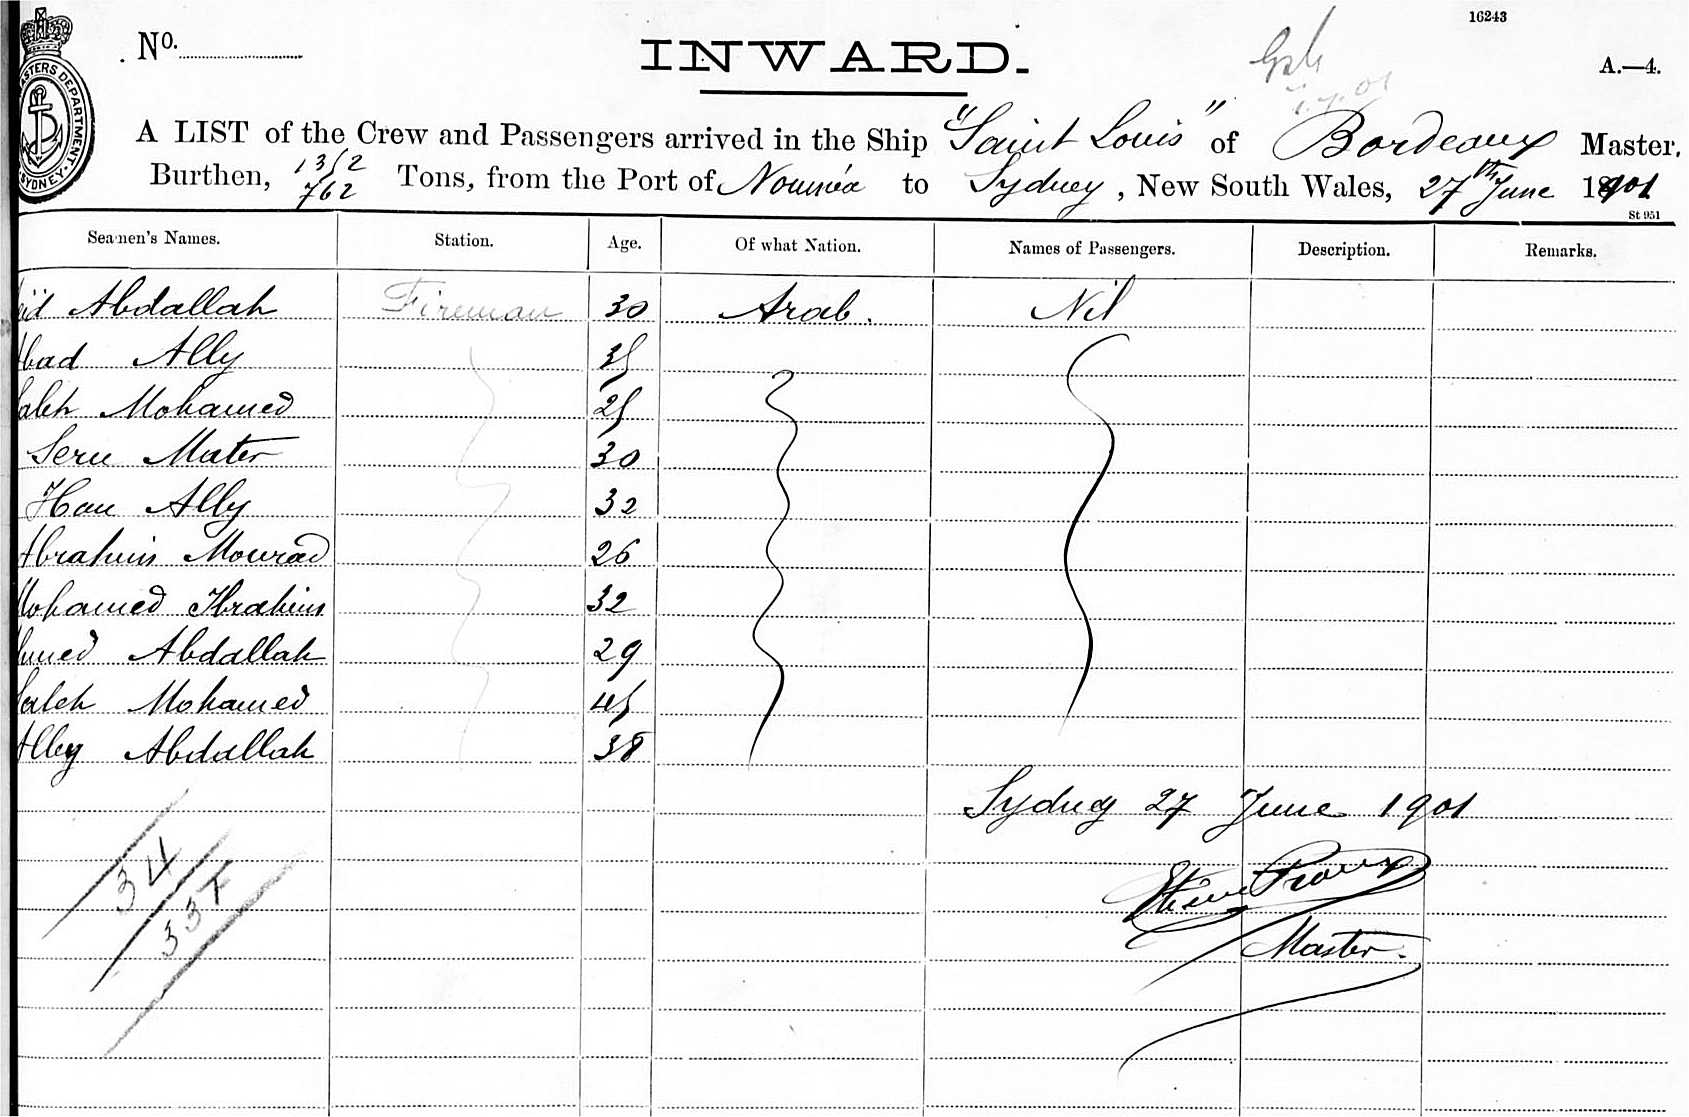 16243
No.
INWARD.
A.—4.
MASTERS DEPARTMENT
SYDNEY
A LIST of the Crew and Passengers arrived in the Ship "Saint Louis" of Bordeaux Master,
Burthen, 1312 Tons, from the Port of Nouméa to Sydney, New South Wales, 27th June 1901
762
St 951
Seamen's Names. Station. Age. Of what Nation. Names of Passengers. Description. Remarks.
Abdallah Fireman 30 Arab. Nil
Ally 35
Saleh Mohamed 25
Seru Mater 30
Hau Ally 32
Abrahim Mourad 26
Mohamed Ibrahim 32
Ahmed Abdallah 29
Saleh Mohamed 45
Alley Abdallah 38
Sydney 27 June 1901
34
337
Master.